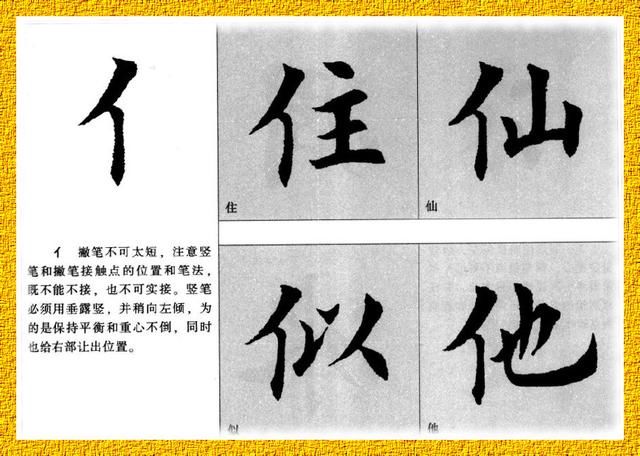 亻
住 仙
住 仙
亻 撇笔不可太短，注意竖
笔和撇笔接触点的位置和笔法，
既不能不接，也不可实接。竖笔
必须用垂露竖，并稍向左倾，为
的是保持平衡和重心不倒，同时
也给右部让出位置。
似 他
似 他